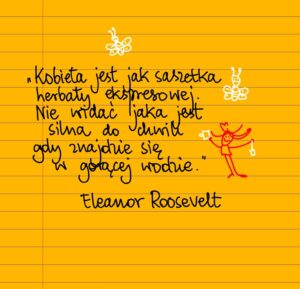 „Kobieta jest jak saszetka
herbaty ekspresowej.
Nie widać jaka jest
silna do chwili
gdy znajdzie się
w gorącej wodzie."
Eleanor Roosevelt